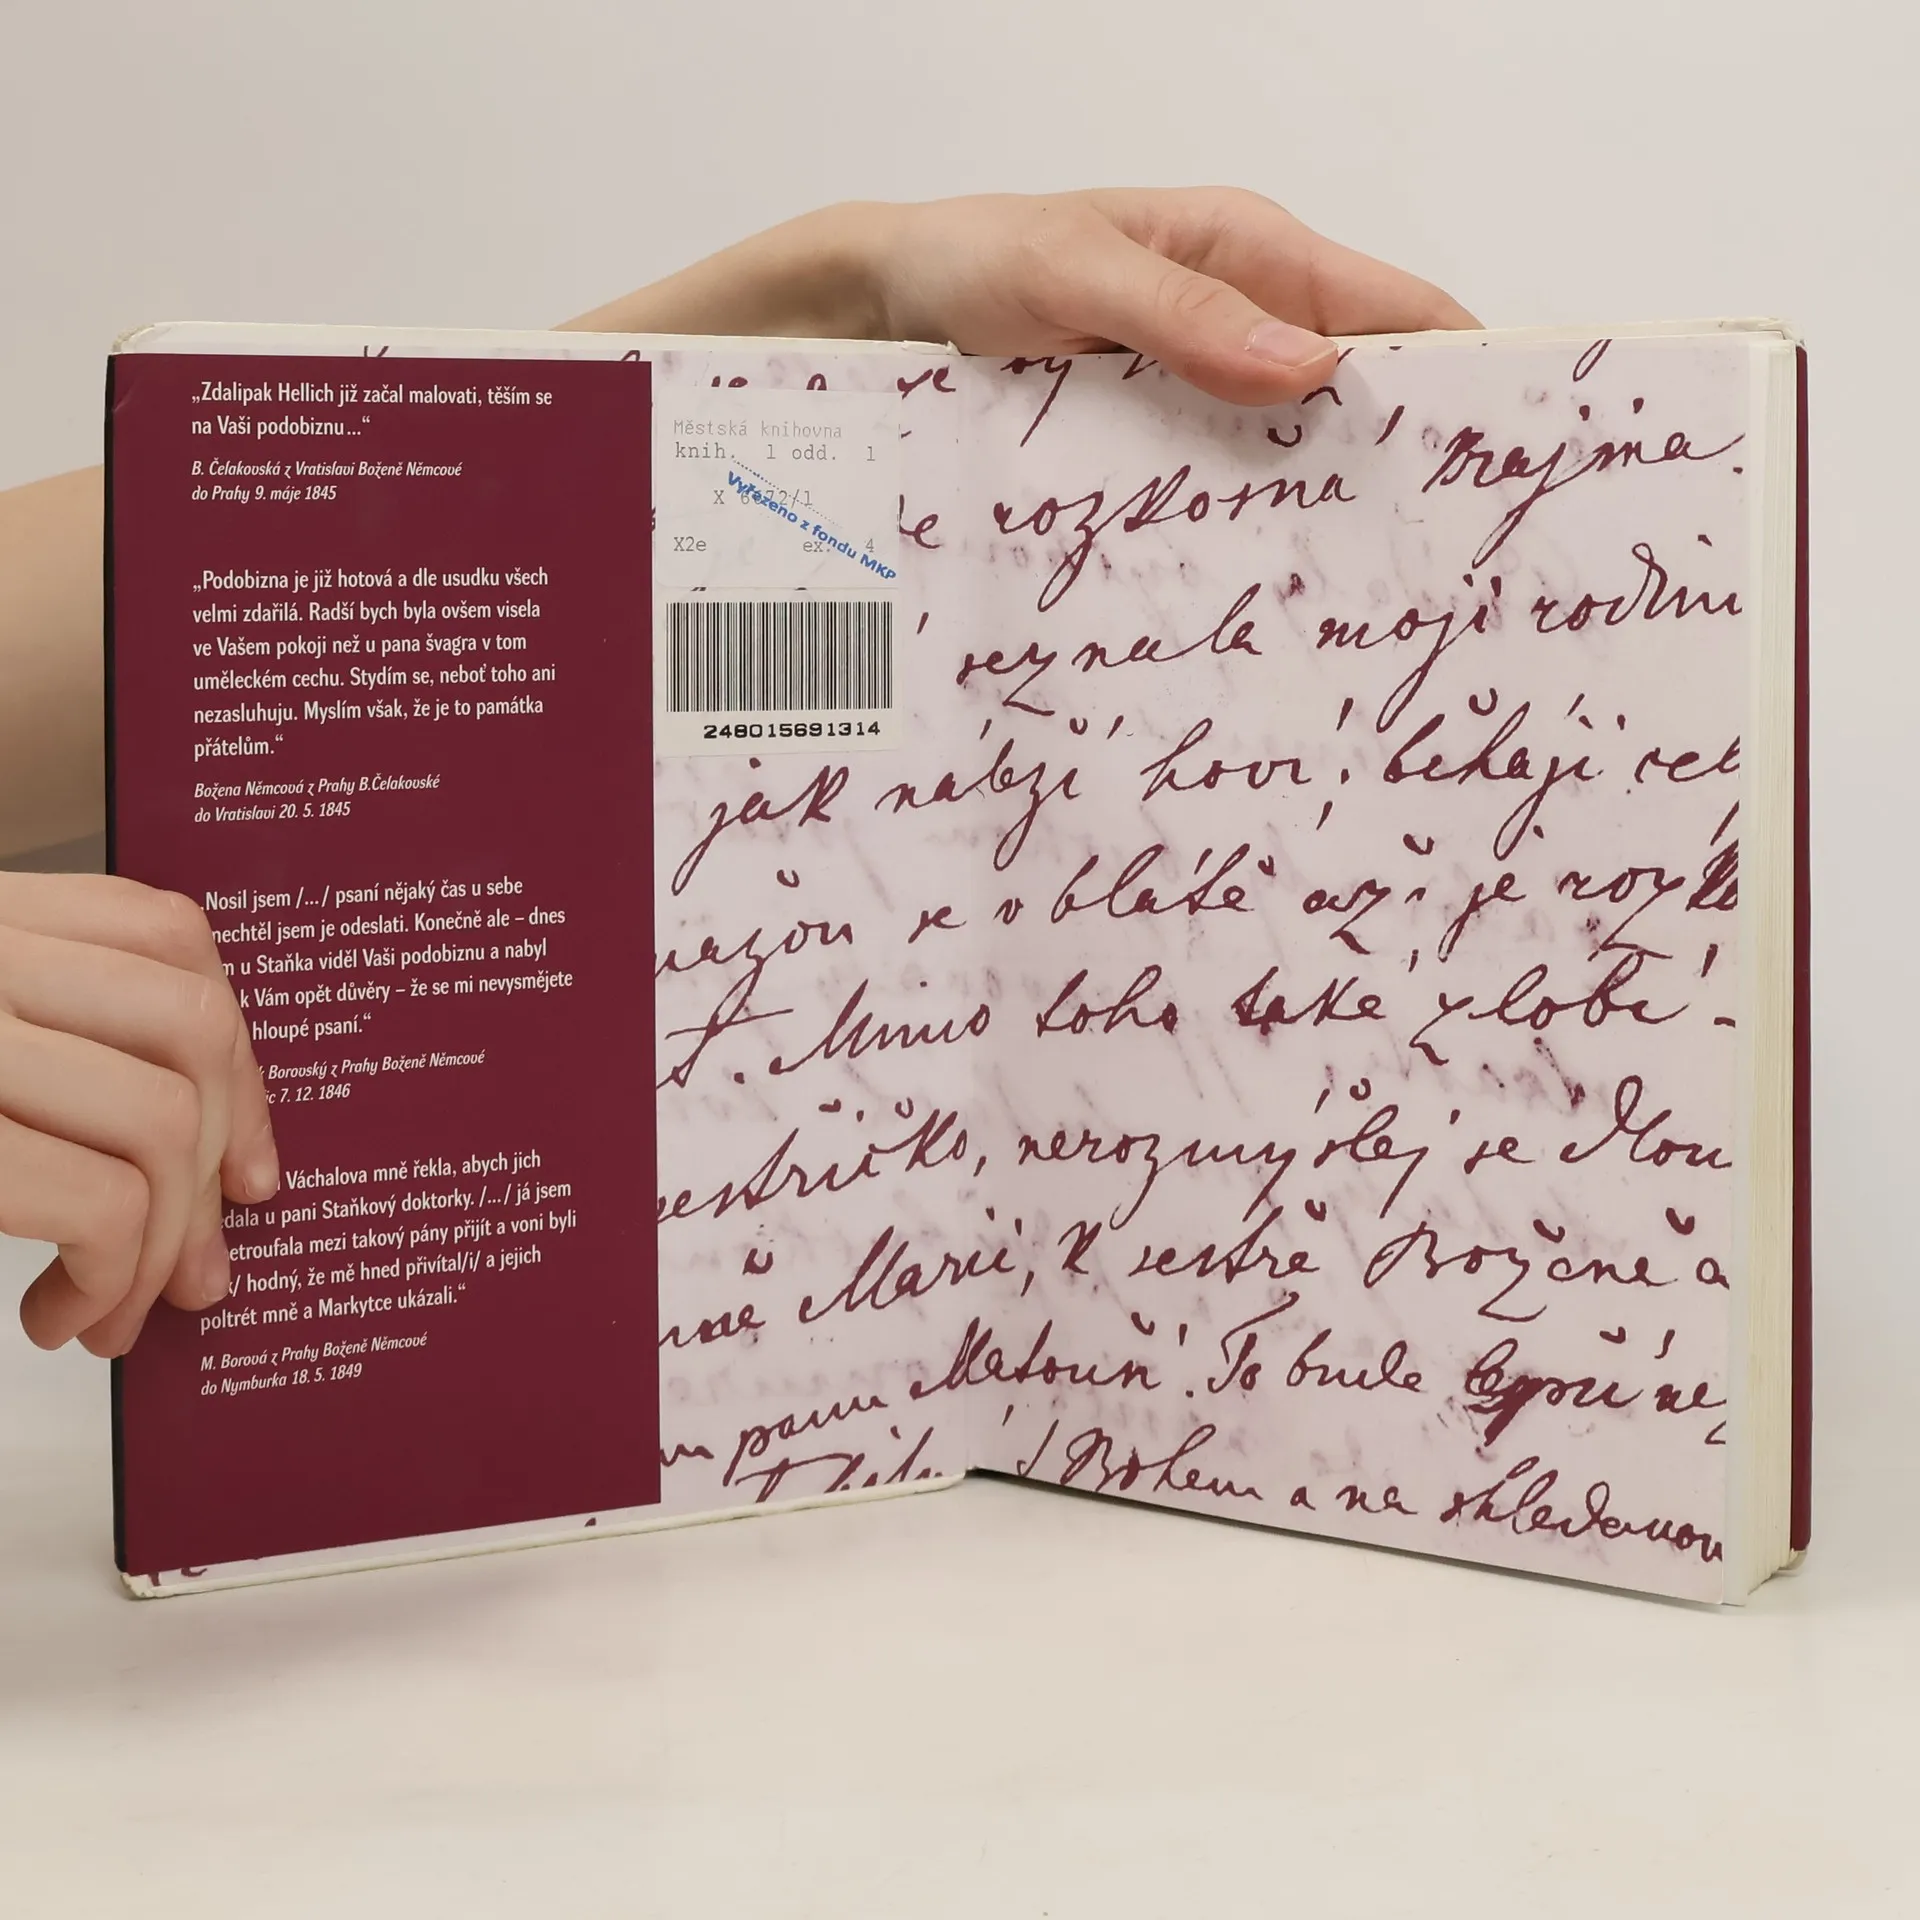 „Zdalipak Hellich již začal malovati, těším se
na Vaši podobiznu...“
B. Čelakovská z Vratislavi Boženě Němcové
do Prahy 9. máje 1845
„Podobizna je již hotová a dle usudku všech
velmi zdařilá. Radší bych byla ovšem visela
ve Vašem pokoji než u pana švagra v tom
uměleckém cechu. Stydím se, neboť toho ani
nezasluhuju. Myslím však, že je to památka
přátelům.“
Božena Němcová z Prahy B.Čelakovské
do Vratislavi 20. 5. 1845
„Nosil jsem /.../ psaní nějaký čas u sebe
nechtěl jsem je odeslati. Konečně ale – dnes
u Staňka viděl Vaši podobiznu a nabyl
k Vám opět důvěry – že se mi nevysmějete
hloupé psaní.“
Borovský z Prahy Boženě Němcové
7. 12. 1846
Váchalova mně řekla, abych jich
u pani Staňkový doktorky. /.../ já jsem
mezi takový pány přijít a voni byli
hodný, že mě hned přivítal/i/ a jejich
poltrét mně a Markytce ukázali.“
M. Borová z Prahy Boženě Němcové
do Nymburka 18. 5. 1849
Městská knihovna
knih. 1 odd. 1
X
X2e ex. 4
Vyřazeno z fondu MKP
248015691314
rozkosná Krajina.
seznala moji
jak nábzí hoví; běhají
se v blátě až je
Mimo toho také zlobí -
nerozmýšlej se
Marii, k sestře Boženě a
panu Matouš. To bude lepší
S Bohem a na shledanou